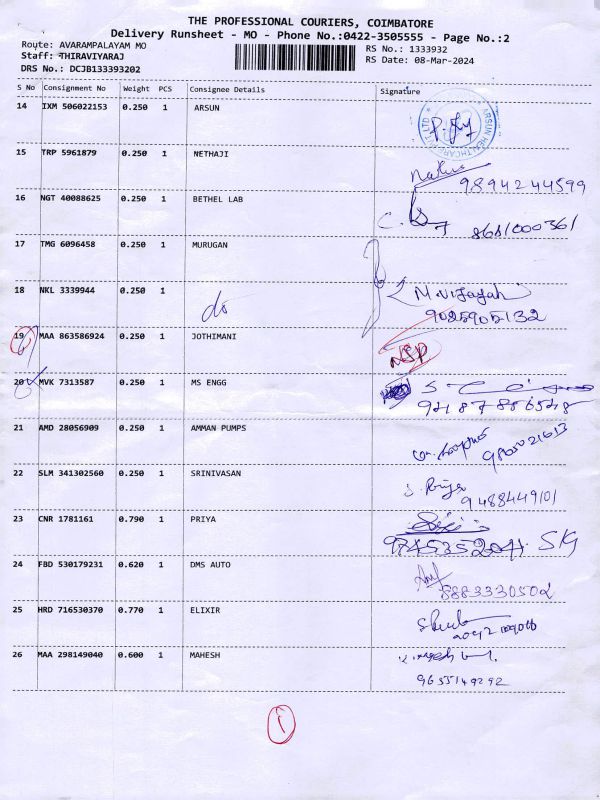 THE PROFESSIONAL COURIERS, COIMBATORE
Delivery Runsheet - MO - Phone No.:0422-3505555 - Page No.:2
Route: AVARAMPALAYAM MO
RS No.: 1333932
Staff: THIRAVIYARAJ
RS Date: 08-Mar-2024
DRS No.: DCJB133393202
S No Consignment No Weight PCS Consignee Details Signature
14 IXM 506022153 0.250 1 ARSUN
ARSUN HEALTHCARE PVT LTD
15 TRP 5961879 0.250 1 NETHAJI
9894244599
16 NGT 40088625 0.250 1 BETHEL LAB
8681000361
17 TMG 6096458 0.250 1 MURUGAN
18 NKL 3339944 0.250 1 do M.Vijayah
9025905132
19 MAA 863586924 0.250 1 JOTHIMANI NSP
20 MVK 7313587 0.250 1 MS ENGG
21 AMD 28056909 0.250 1 AMMAN PUMPS
22 SLM 341302560 0.250 1 SRINIVASAN J. Priya
9488449101
23 CNR 1781161 0.790 1 PRIYA
24 FBD 530179231 0.620 1 DMS AUTO
8883330502
25 HRD 716530370 0.770 1 ELIXIR
26 MAA 298149040 0.600 1 MAHESH
9655149292
1